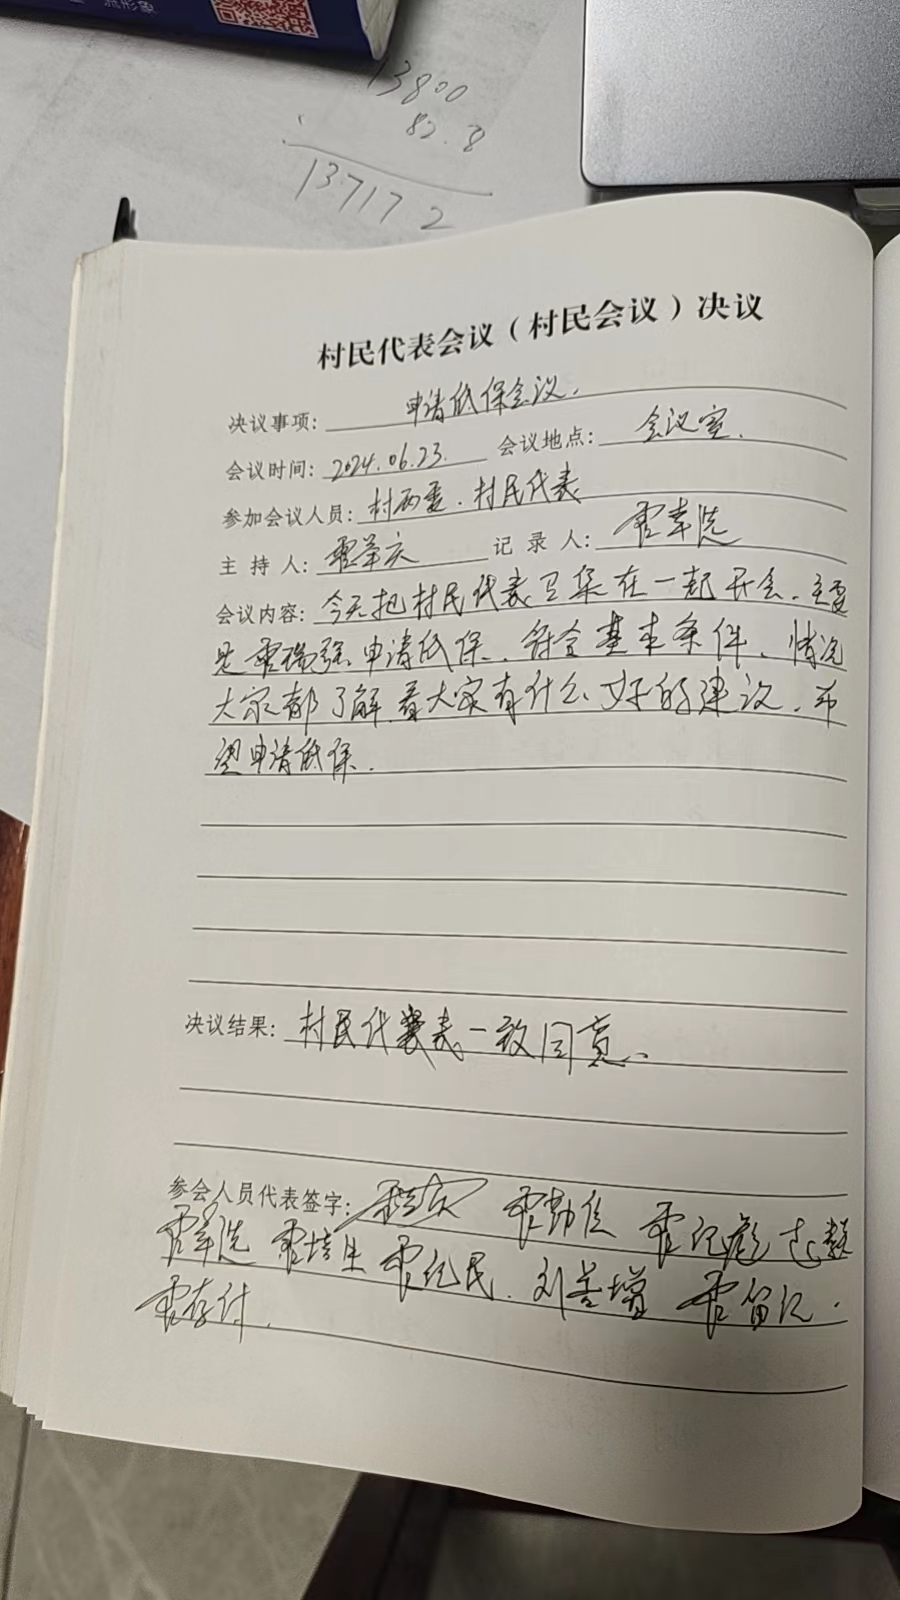 13800
82.8
13717 2
村民代表会议（村民会议）决议
决议事项： 申请低保会议.
会议时间：2024.06.23. 会议地点： 会议室.
参加会议人员：村两委.村民代表
主 持 人：霍 庆 记 录 人：霍 选
会议内容：今天把村民代表 集在一起开会.主要
是霍瑞强申请低保、符合基本条件、情况
大家都了解.看大家有什么好的建议.希
望申请低保.
决议结果：村民代表一致同意、
参会人员代表签字： 霍勤 霍记
霍 选 霍培生 霍纪民.刘善增 霍留记.
霍存付.